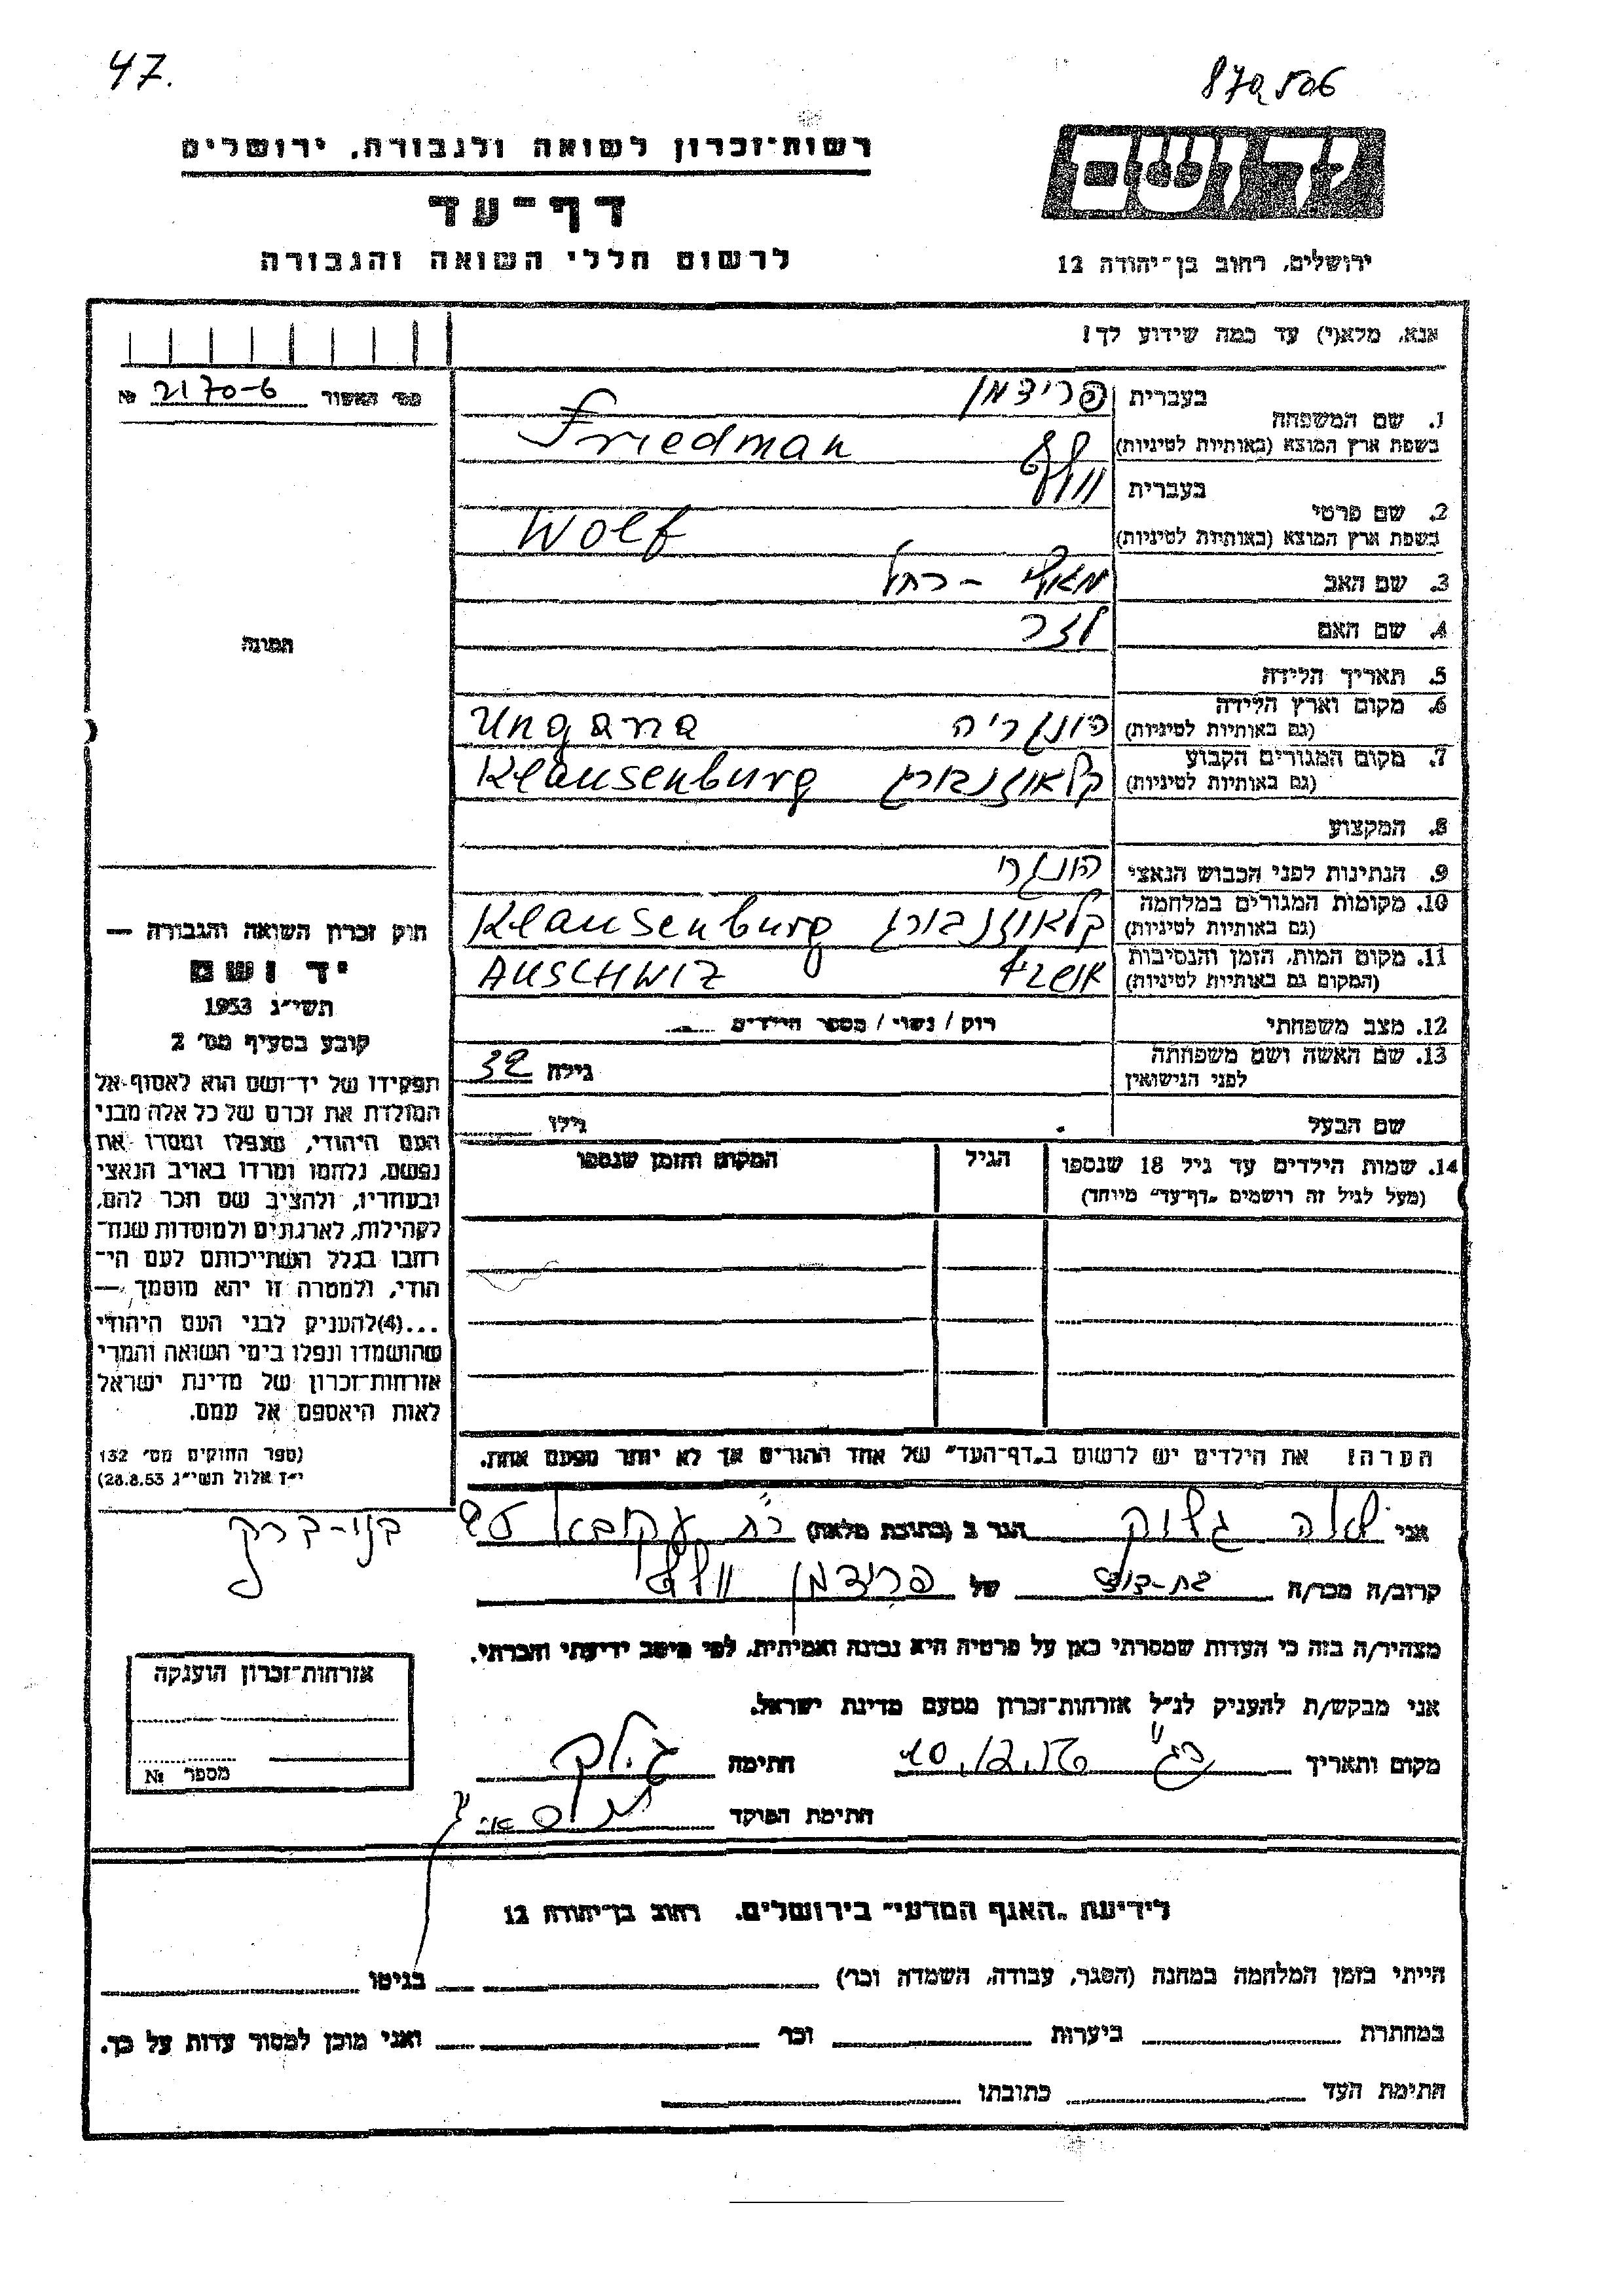 47.
87a506
רשות-זכרון לשואה ולגבורה, ירושלים
ידושם
דף-עד
לרשום חללי השואה והגבורה
ירושלים, רחוב בן-יהודה 12
אנא, מלא(י) עד כמה שידוע לך!
מס' האשור 2170-6 №
1. שם המשפחה בעברית פרידמן
בשפת ארץ המוצא (באותיות לטיניות) Friedman
2. שם פרטי בעברית וולף
בשפת ארץ המוצא (באותיות לטיניות) Wolf
3. שם האב
4. שם האם
5. תאריך הלידה
6. מקום וארץ הלידה הונגריה
(גם באותיות לטיניות)
7. מקום המגורים הקבוע קלאוזנבורג Klausenburg
(גם באותיות לטיניות)
8. המקצוע
9. הנתינות לפני הכבוש הנאצי הונגרי
10. מקומות המגורים במלחמה קלאוזנבורג Klausenburg
(גם באותיות לטיניות)
11. מקום המות, הזמן והנסיבות AUSCHWIZ
(המקום גם באותיות לטיניות)
12. מצב משפחתי רוק / נשוי / מספר הילדים
13. שם האשה ושם משפחתה גילה 32
לפני הנישואין
שם הבעל גילו
14. שמות הילדים עד גיל 18 שנספו הגיל המקום והזמן שנספו
(מעל לגיל זה רושמים "דף-עד" מיוחד)
הערה! את הילדים יש לרשום ב"דף-העד" של אחד ההורים אך לא יותר מפעם אחת.
התמונה
חוק זכרון השואה והגבורה —
יד ושם
תשי"ג 1953
קובע בסעיף מס' 2
תפקידו של יד-ושם הוא לאסוף אל
המולדת את זכרם של כל אלה מבני
העם היהודי, שנפלו ומסרו את
נפשם, נלחמו ומרדו באויב הנאצי
ובעוזריו, ולהציב שם וזכר להם,
לקהילות, לארגונים ולמוסדות שנח-
רבו בגלל השתייכותם לעם הי-
הודי, ולמטרה זו יהא מוסמך —
...(4)להעניק לבני העם היהודי
שהושמדו ונפלו בימי השואה והמרי
אזרחות-זכרון של מדינת ישראל
לאות היאספם אל עמם.
(ספר החוקים מס' 132
י"ז אלול תשי"ג 28.8.53)
אני גלוק הגר ב (כתובת מלאה) עקיבא בני-ברק
קרוב/ה מכר/ה של פרידמן וולף
מצהיר/ה בזה כי העדות שמסרתי כאן על פרטיה היא נכונה ואמיתית, לפי מיטב ידיעתי והכרתי.
אני מבקש/ת להעניק לנ"ל אזרחות-זכרון מטעם מדינת ישראל.
מקום ותאריך חתימה
חתימת הפוקד
אזרחות-זכרון הוענקה
מספר №
לידיעת "האגף המדעי" בירושלים, רחוב בן-יהודה 12
הייתי בזמן המלחמה במחנה (הסגר, עבודה, השמדה וכו') בגיטו
במחתרת ביערות וכו' ואני מוכן למסור עדות על כך.
חתימת העד כתובתו